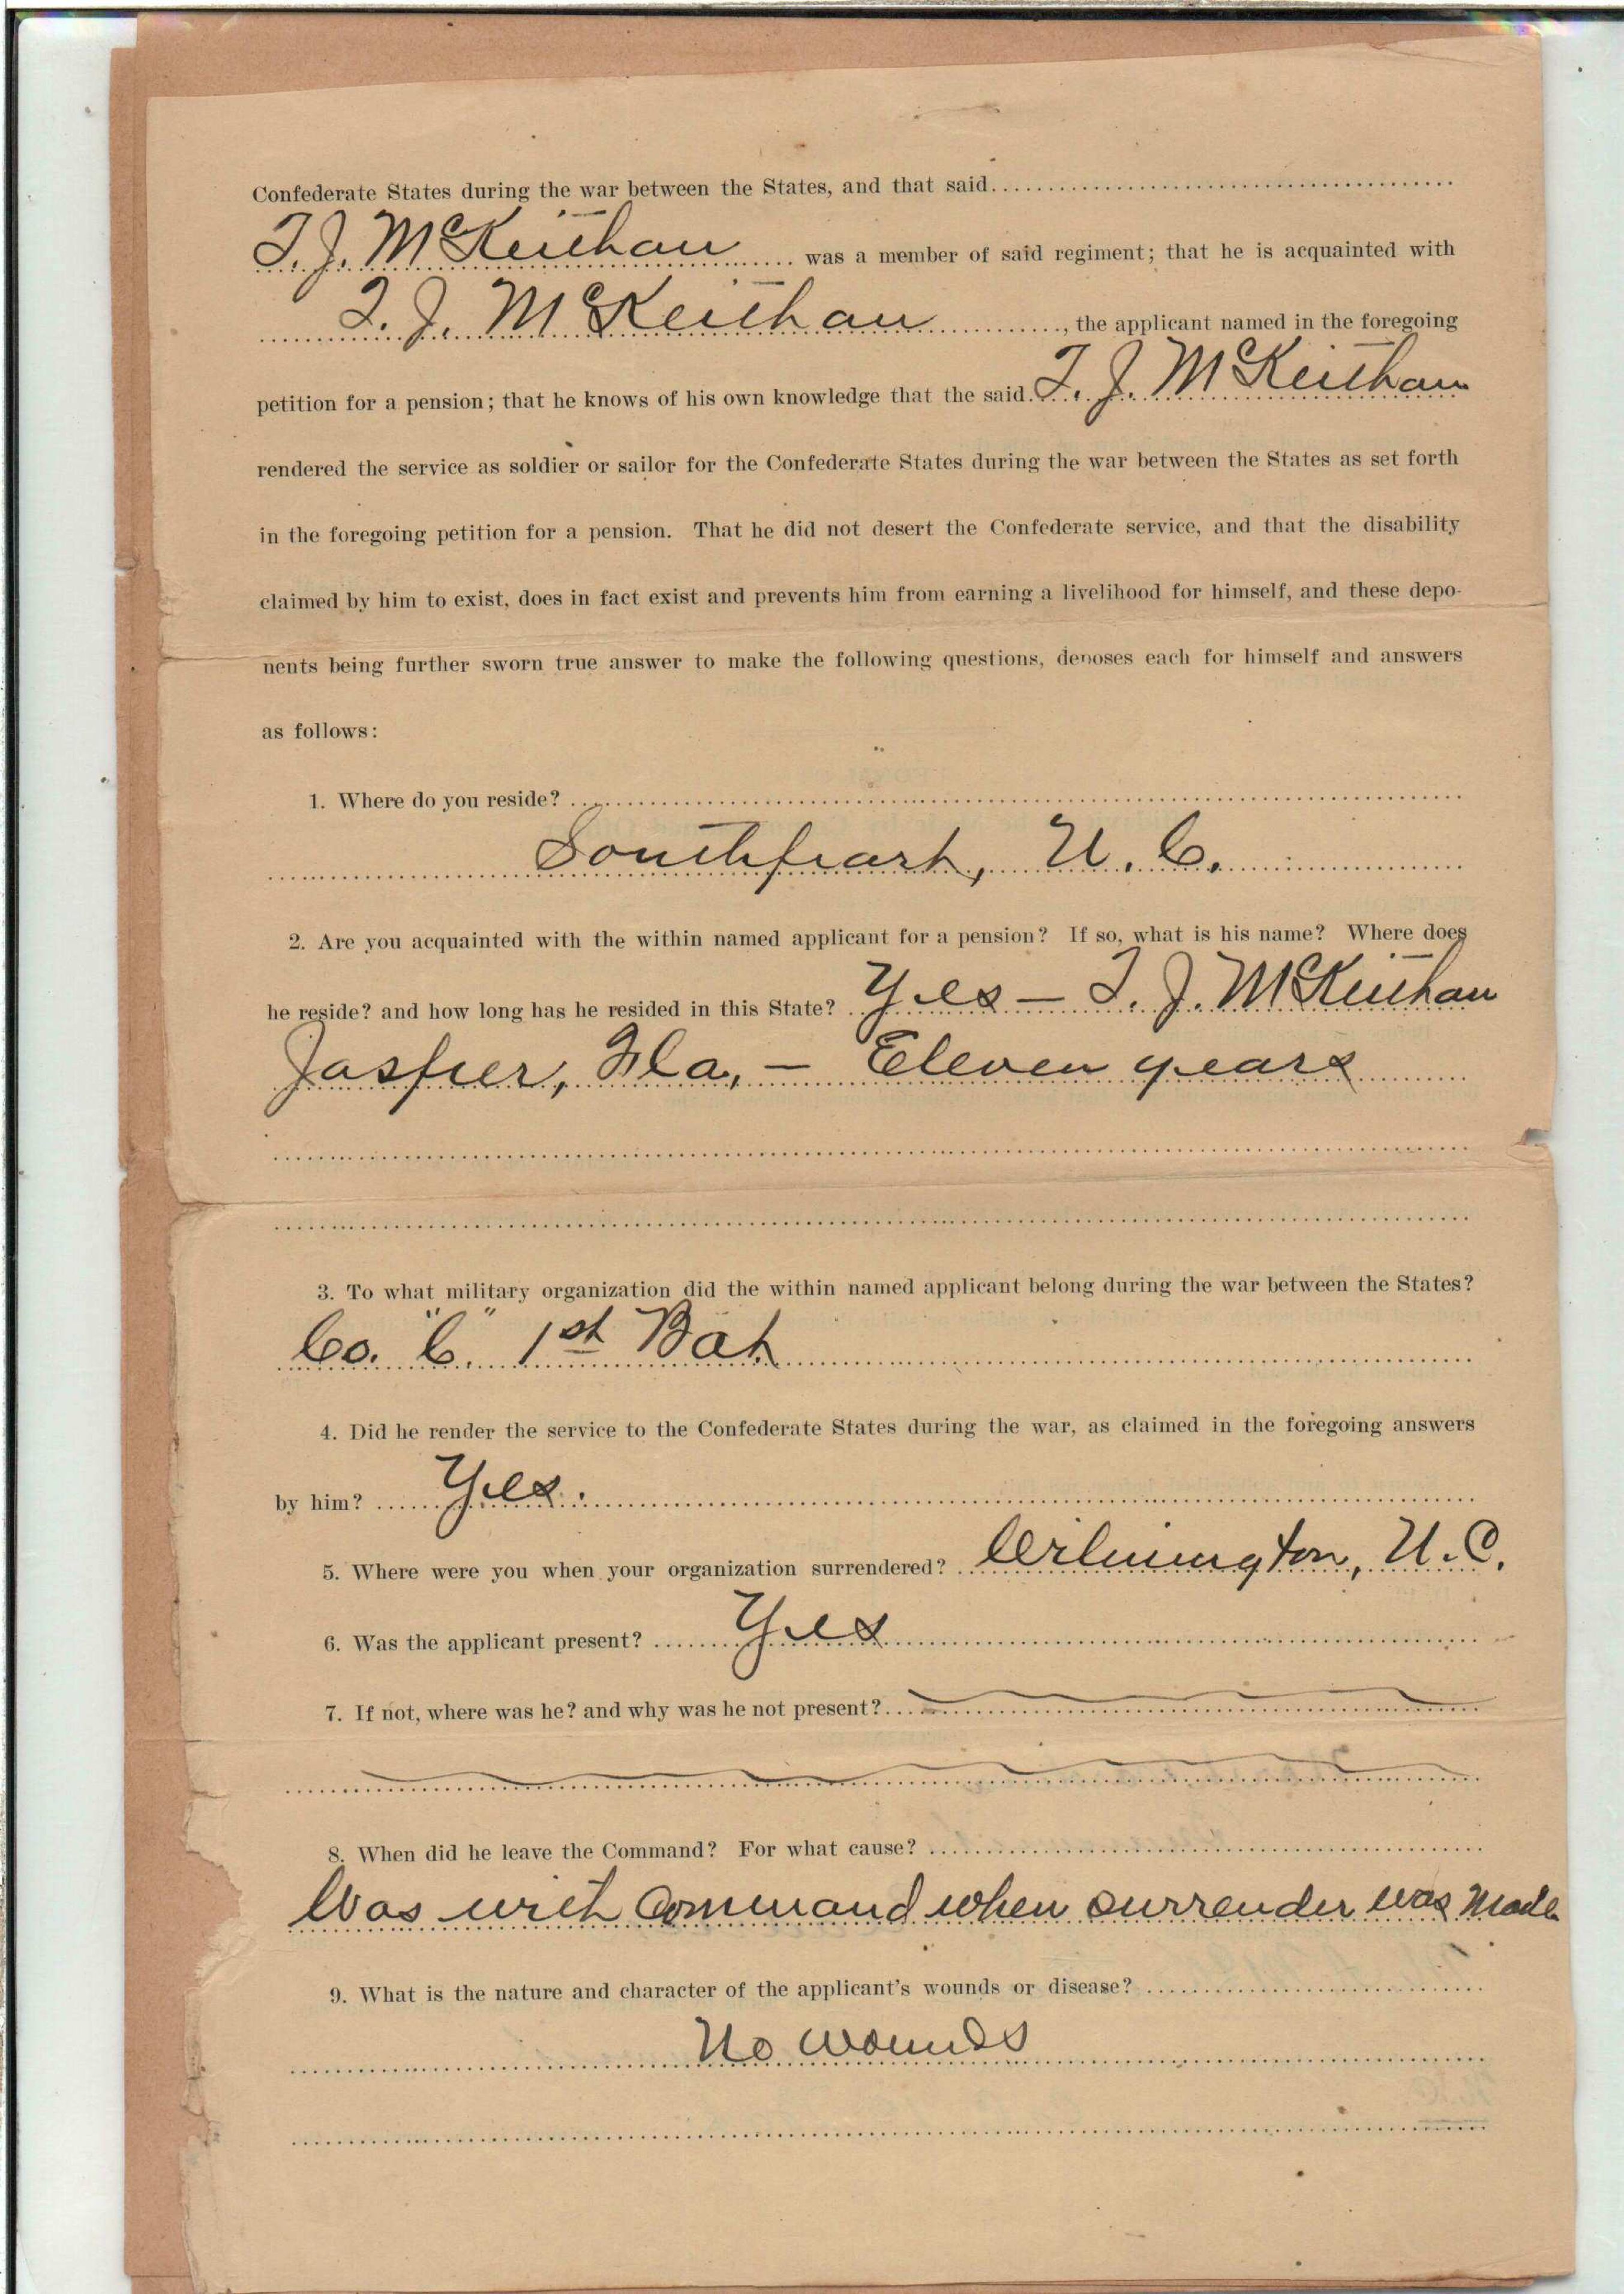 Confederate States during the war between the States, and that said
T. J. McKeithan was a member of said regiment; that he is acquainted with
T. J. McKeithan, the applicant named in the foregoing
petition for a pension; that he knows of his own knowledge that the said T. J. McKeithan
rendered the service as soldier or sailor for the Confederate States during the war between the States as set forth
in the foregoing petition for a pension. That he did not desert the Confederate service, and that the disability
claimed by him to exist, does in fact exist and prevents him from earning a livelihood for himself, and these depo-
nents being further sworn true answer to make the following questions, deposes each for himself and answers
as follows:
1. Where do you reside?
Southport, N. C.
2. Are you acquainted with the within named applicant for a pension? If so, what is his name? Where does
he reside? and how long has he resided in this State? Yes — T. J. McKeithan
Jasper, Fla, — Eleven years
3. To what military organization did the within named applicant belong during the war between the States?
Co. "C" 1st Bat
4. Did he render the service to the Confederate States during the war, as claimed in the foregoing answers
by him? Yes.
5. Where were you when your organization surrendered? Wilmington, N. C.
6. Was the applicant present? Yes
7. If not, where was he? and why was he not present?
8. When did he leave the Command? For what cause?
Was with Command when surrender was Made
9. What is the nature and character of the applicant's wounds or disease?
No wounds